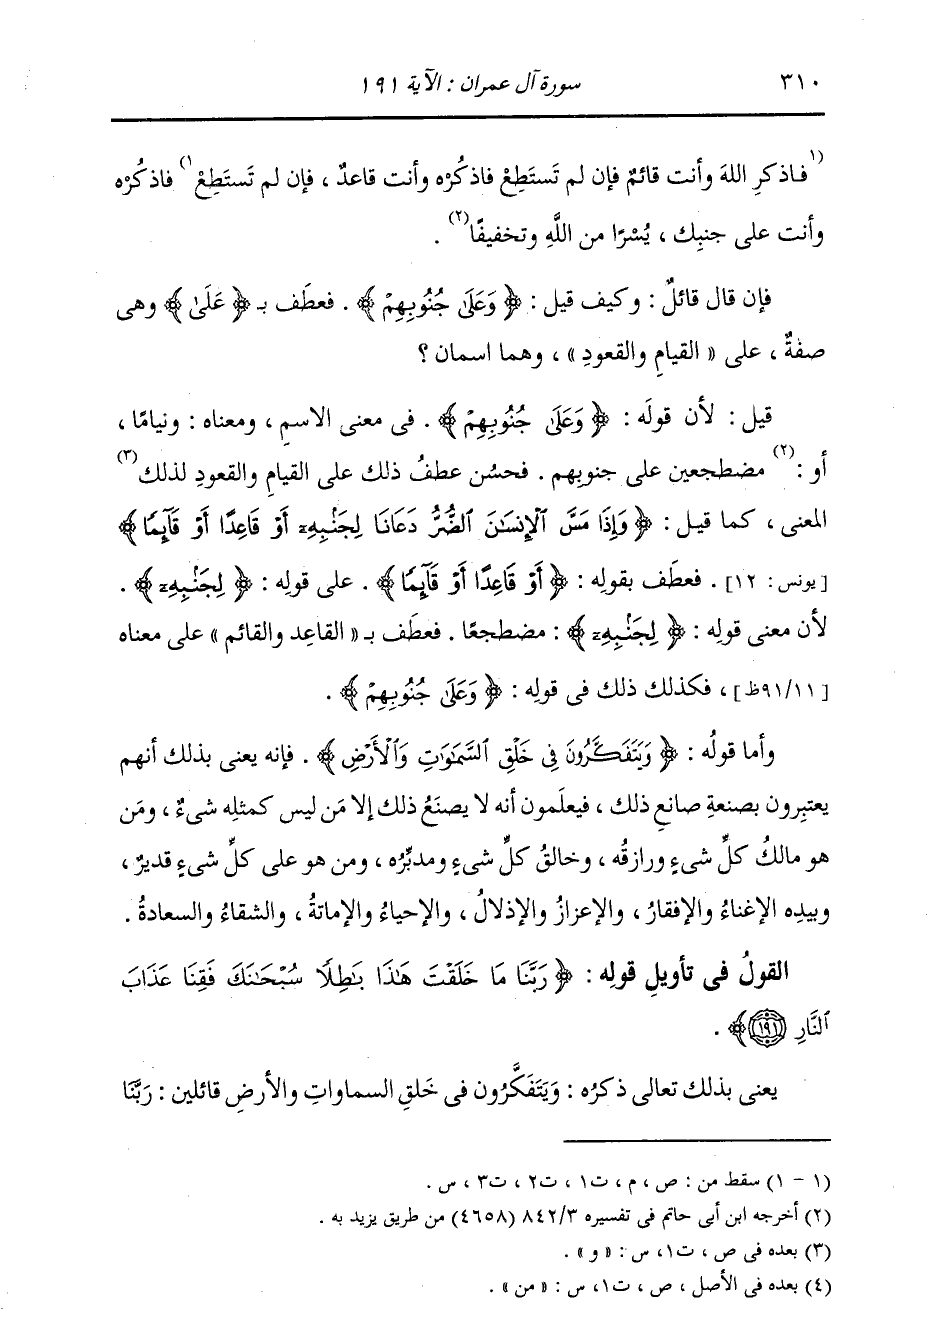 ٣١٠ سورة آل عمران : الآية ١٩١
(١) فاذكرِ اللهَ وأنت قائمٌ فإن لم تَستَطِعْ فاذكُرْه وأنت قاعدٌ ، فإن لم تَستَطِعْ (١) فاذكُرْه
وأنت على جنبِك ، يُسْرًا من اللَّهِ وتخفيفًا (٢) .
فإن قال قائلٌ : وكيف قيل : ﴿ وَعَلَىٰ جُنُوبِهِمْ ﴾ . فعطَف بـ ﴿ عَلَىٰ ﴾ وهى
صفةٌ ، على « القيامِ والقعودِ » ، وهما اسمان ؟
قيل : لأن قولَه : ﴿ وَعَلَىٰ جُنُوبِهِمْ ﴾ . فى معنى الاسمِ ، ومعناه : ونيامًا ،
أو : (٢) مضطجعين على جنوبِهم . فحسُن عطفُ ذلك على القيامِ والقعودِ لذلك (٣)
المعنى ، كما قيل : ﴿ وَإِذَا مَسَّ ٱلْإِنسَٰنَ ٱلضُّرُّ دَعَانَا لِجَنۢبِهِۦٓ أَوْ قَاعِدًا أَوْ قَآئِمًا ﴾
[يونس : ١٢] . فعطَف بقولِه : ﴿ أَوْ قَاعِدًا أَوْ قَآئِمًا ﴾ . على قولِه : ﴿ لِجَنۢبِهِۦٓ ﴾ .
لأن معنى قولِه : ﴿ لِجَنۢبِهِۦٓ ﴾ : مضطجعًا . فعطَف بـ « القاعِد والقائم » على معناه
[٩١/١١ظ] ، فكذلك ذلك فى قولِه : ﴿ وَعَلَىٰ جُنُوبِهِمْ ﴾ .
وأما قولُه : ﴿ وَيَتَفَكَّرُونَ فِى خَلْقِ ٱلسَّمَٰوَٰتِ وَٱلْأَرْضِ ﴾ . فإنه يعنى بذلك أنهم
يعتبِرون بصنعةِ صانعِ ذلك ، فيعلَمون أنه لا يصنَعُ ذلك إلا مَن ليس كمثلِه شىءٌ ، ومَن
هو مالكُ كلِّ شىءٍ ورازقُه ، وخالقُ كلِّ شىءٍ ومدبِّرُه ، ومن هو على كلِّ شىءٍ قديرٌ ،
وبيدِه الإغناءُ والإفقارُ ، والإعزازُ والإذلالُ ، والإحياءُ والإماتةُ ، والشقاءُ والسعادةُ .
القولُ فى تأويلِ قولِه : ﴿ رَبَّنَا مَا خَلَقْتَ هَٰذَا بَٰطِلًا سُبْحَٰنَكَ فَقِنَا عَذَابَ
ٱلنَّارِ ١٩١ ﴾ .
يعنى بذلك تعالى ذكرُه : وَيَتَفَكَّرُون فى خَلقِ السماواتِ والأرضِ قائلين : رَبَّنَا
(١ - ١) سقط من : ص ، م ، ت١ ، ت٢ ، ت٣ ، س .
(٢) أخرجه ابن أبى حاتم فى تفسيره ٨٤٢/٣ (٤٦٥٨) من طريق يزيد به .
(٣) بعده فى ص ، ت١، س : « و » .
(٤) بعده فى الأصل ، ص ، ت١، س : « من » .